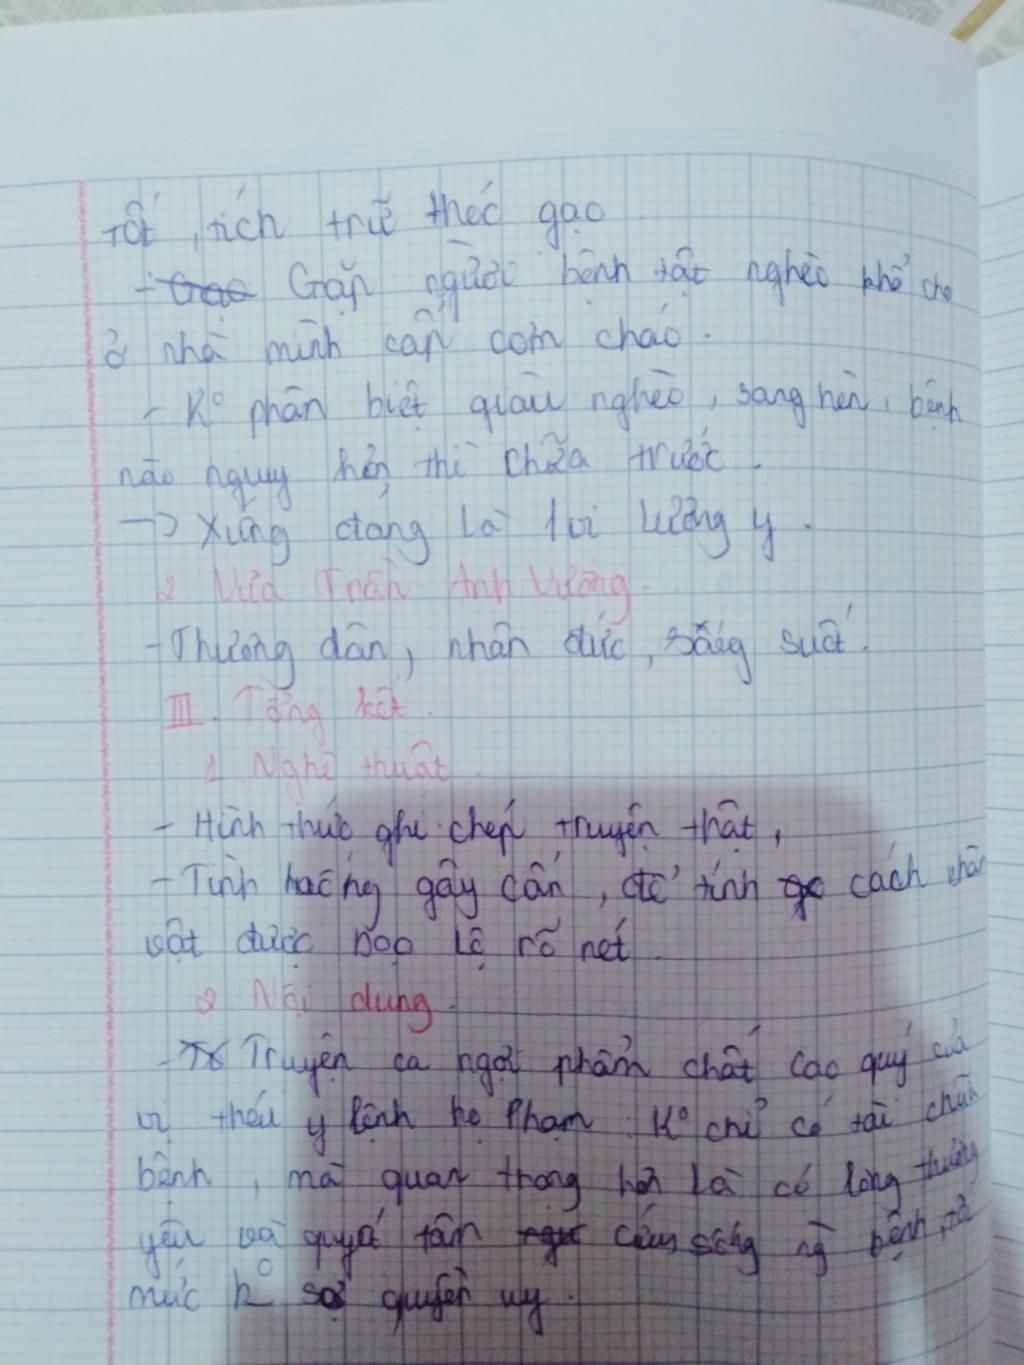 tốt, tích trữ thóc gạo
- Gặp người bệnh tật nghèo khổ cho
ở nhà mình cấp cơm cháo.
- Kº phân biệt giàu nghèo, sang hèn, bệnh
nào nguy hơn thì chữa trước.
-> Xứng đáng là lương y.
2. Vua Trần Anh Vương.
- Thương dân, nhân đức, sáng suốt.
III. Tổng kết.
1. Nghệ thuật.
- Hình thức ghi chép truyện thật,
- Tình huống gây cấn, để tính cách nhân
vật được bộc lộ rõ nét.
2. Nội dung.
- Truyện ca ngợi phẩm chất cao quý của
vị thái y lệnh họ Phạm: Kº chỉ có tài chữa
bệnh, mà quan trọng hơn là có lòng thương
yêu và quyết tâm cứu sống ng bệnh, tới
mức kº sợ quyền uy.